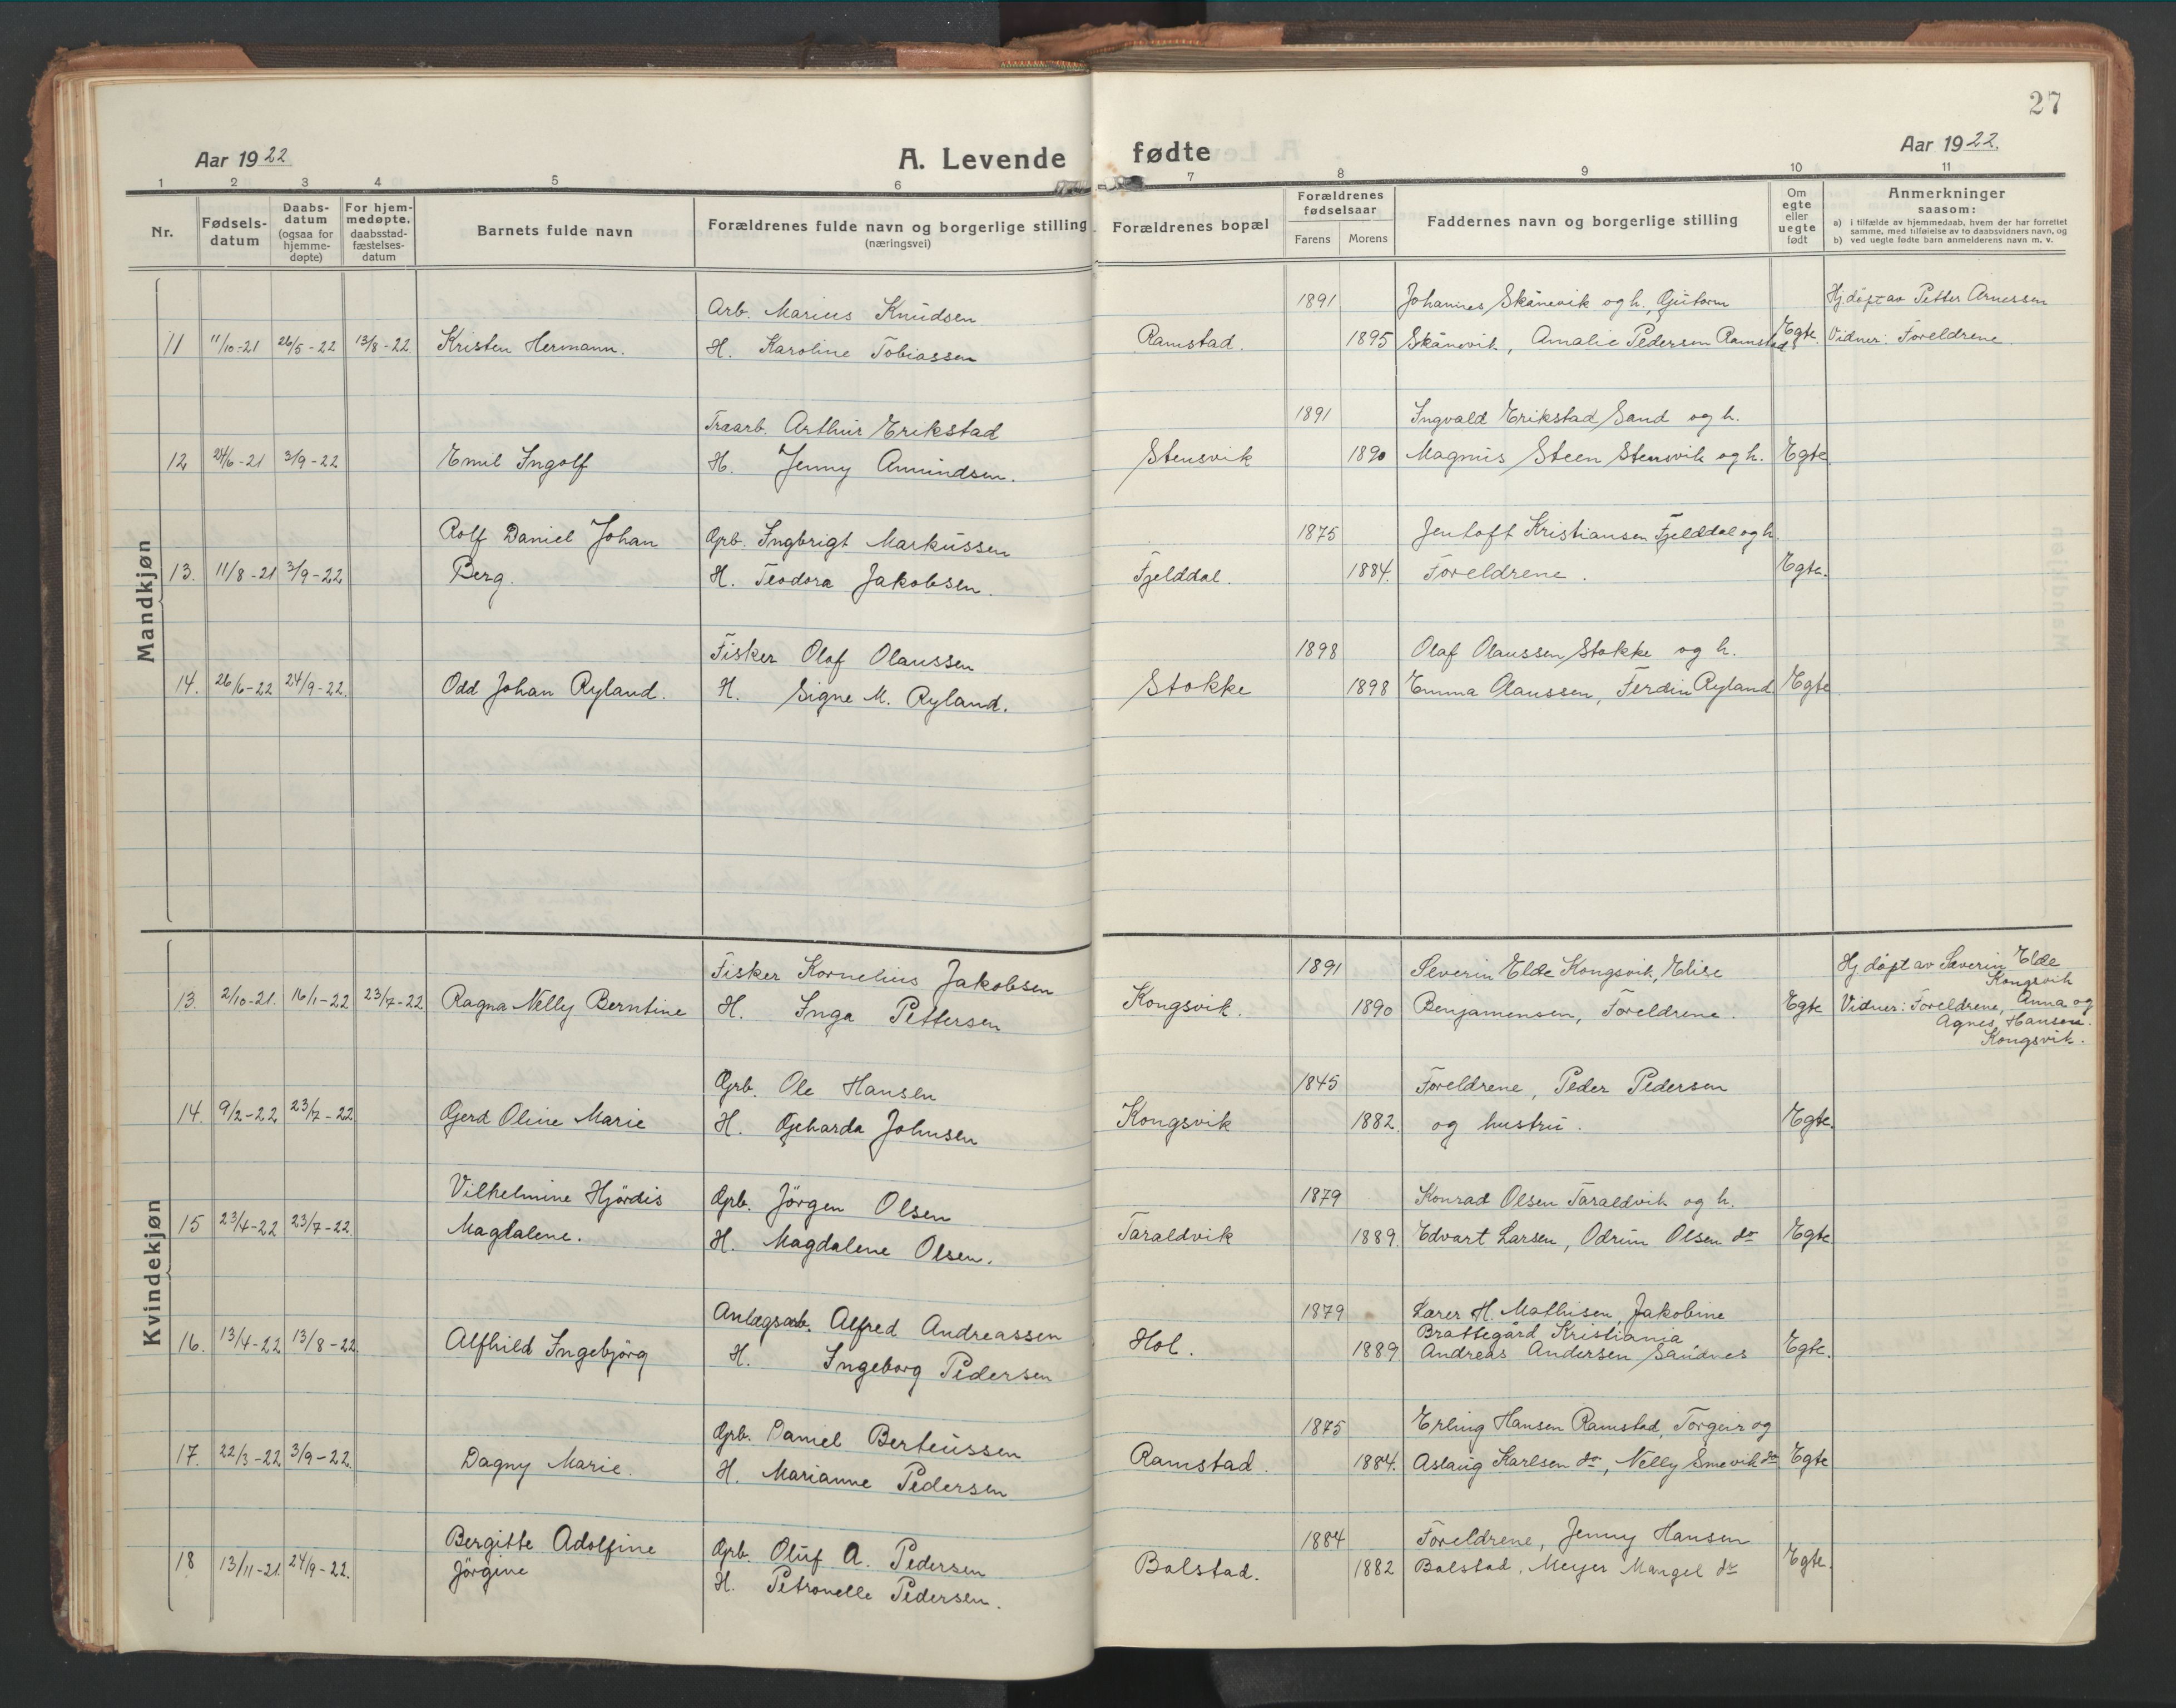 27
Aar 1922
A. Levende fødte
Aar 1922.
1 2 3 4 5 6 7 8 9 10 11
Nr.
Fødsels-
datum
Daabs-
datum
(ogsaa for
hjemme-
døpte)
For hjem-
medøpte,
daabsstad-
fæstelses-
datum
Barnets fulde navn
Forældrenes fulde navn og borgerlige stilling
(næringsvei)
Forældrenes bopæl
Forældrenes
fødselsaar
Farens Morens
Faddernes navn og borgerlige stilling
Om
egte
eller
uegte
født
Anmerkninger
saasom:
a) i tilfælde av hjemmedaab, hvem der har forrettet
samme, med tilføielse av to daabsvidners navn, og
b) ved uegte fødte barn anmelderens navn m. v.
Mandkjøn
Arb. Marius Knudsen 1891 Johannes Skånevik og h., Gjutorm Hj.døpt av Petter Arnessen
11 11/10-21 26/5-22 13/8-22 Kristen Hermann. H. Karoline Tobiassen Ramstad. 1895 Skånevik, Amalie Pedersen Ramstad Egte. Vidner: Foreldrene
Træarb. Arthur Erikstad 1891 Ingvald Erikstad Sand og h.
12 24/6-21 3/9-22 Emil Ingolf H. Jenny Amundsen. Stensvik 1890 Magnus Steen Stensvik og h. Egte
Rolf Daniel Johan Gprb. Ingbrigt Markussen 1875 Jentoft Kristiansen Fjelddal og h.
13. 11/8-21 3/9-22 Berg. H. Teodora Jakobsen. Fjelddal. 1884. Foreldrene. Egte.
Fisker Olaf Olaussen 1898 Olaf Olaussen Stokke og h.
14. 26/6-22 24/9-22. Odd Johan Ryland. H. Signe M. Ryland. Stokke 1898 Emma Olaussen, Ferdin Ryland Egte
Kvindekjøn
Fisker Kornelius Jakobsen 1891 Severin Elde Kongsvik, Elise Hj døpt av Severin Elde
Kongsvik
13. 2/10-21. 16/1-22 23/7-22 Ragna Nelly Berntine H. Inga Pettersen Kongsvik. 1890 Benjamensen, Foreldrene. Egte Vidner: Foreldrene, Anna og
Agnes Hansen.
Kongsvik.
Gprb. Ole Hansen 1845 Foreldrene, Peder Pedersen
14. 9/2-22 23/7-22 Gjerd Oline Marie H. Gjeharda Johnsen Kongsvik 1882. og hustru. Egte.
Vilhelmine Hjördis Gprb. Jörgen Olsen 1879 Konrad Olsen Taraldvik og h.
15 23/4-22 23/7-22. Magdalene. H. Magdalene Olsen. Taraldvik 1889. Edvart Larsen, Odrun Olsen do Egte
Anlægsarb. Alfred Andreassen 1879 Lærer H. Mathisen, Jakobine
Brattegård Kristiania
16. 13/4-22 13/8-22. Alfhild Ingebjörg H. Ingeborg Pedersen Hol. 1889 Andreas Andersen Sandnes Egte.
Gprb. Daniel Berteussen 1875 Erling Hansen Ramstad, Torgeir og
17. 22/3-22 3/9-22. Dagny Marie. H. Marianne Pedersen Ramstad. 1884. Aslaug Karlsen do, Nelly Smevik do Egte
Bergitte Adolfine Gprb. Oluf A. Pedersen 1884 Foreldrene, Jenny Hansen
18 13/11-21. 24/9-22. Jörgine H. Petronelle Pedersen. Bolstad. 1882 Bolstad, Meyer Mangel do Egte.